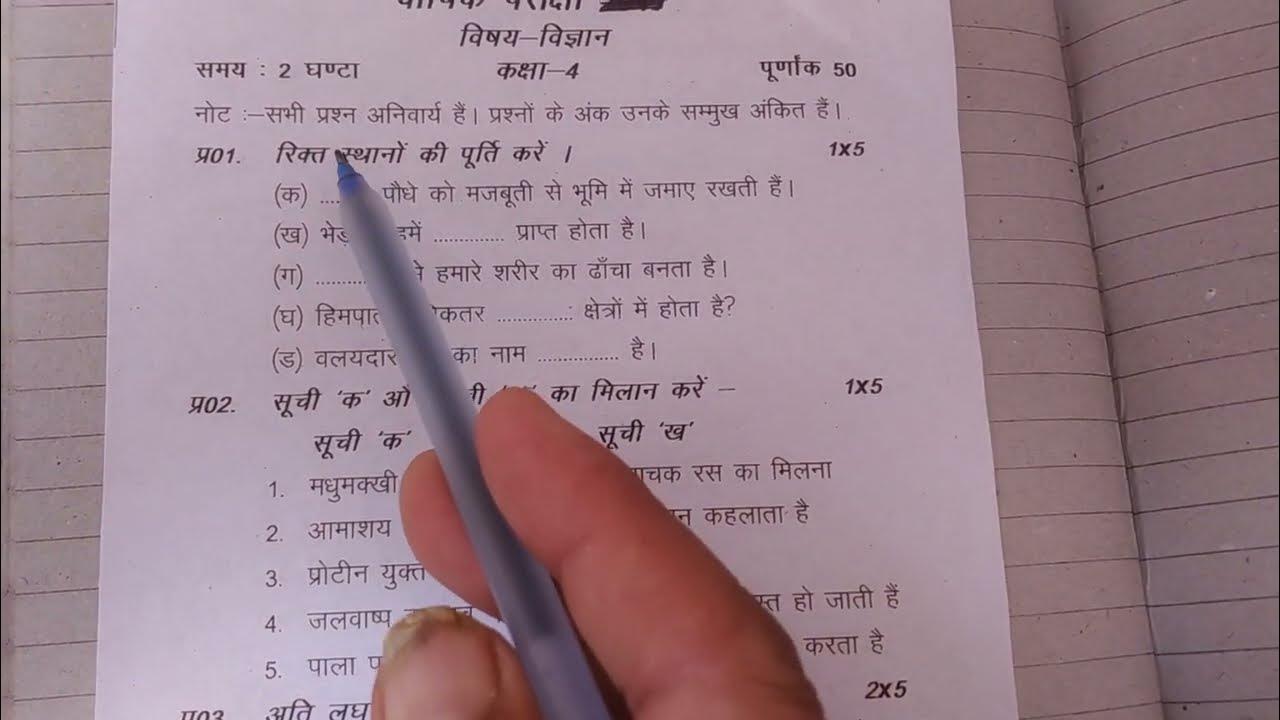 वार्षिक परीक्षा
विषय–विज्ञान
समय : 2 घण्टा कक्षा–4 पूर्णांक 50
नोट :–सभी प्रश्न अनिवार्य हैं। प्रश्नों के अंक उनके सम्मुख अंकित हैं।
प्र01. रिक्त स्थानों की पूर्ति करें । 1X5
(क) ..... पौधे को मजबूती से भूमि में जमाए रखती हैं।
(ख) हमें .............. प्राप्त होता है।
(ग) ........... हमारे शरीर का ढाँचा बनता है।
(घ) ...............: क्षेत्रों में होता है?
(ड) वलयदार का नाम ................ है।
प्र02. सूची 'क' का मिलान करें – 1X5
सूची 'क' सूची 'ख'
1. मधुमक्खी रस का मिलना
2. आमाशय कहलाता है
3. प्रोटीन युक्त
4. जलवाष्प हो जाती हैं
5. पाला करता है
2X5
प्र03. अति